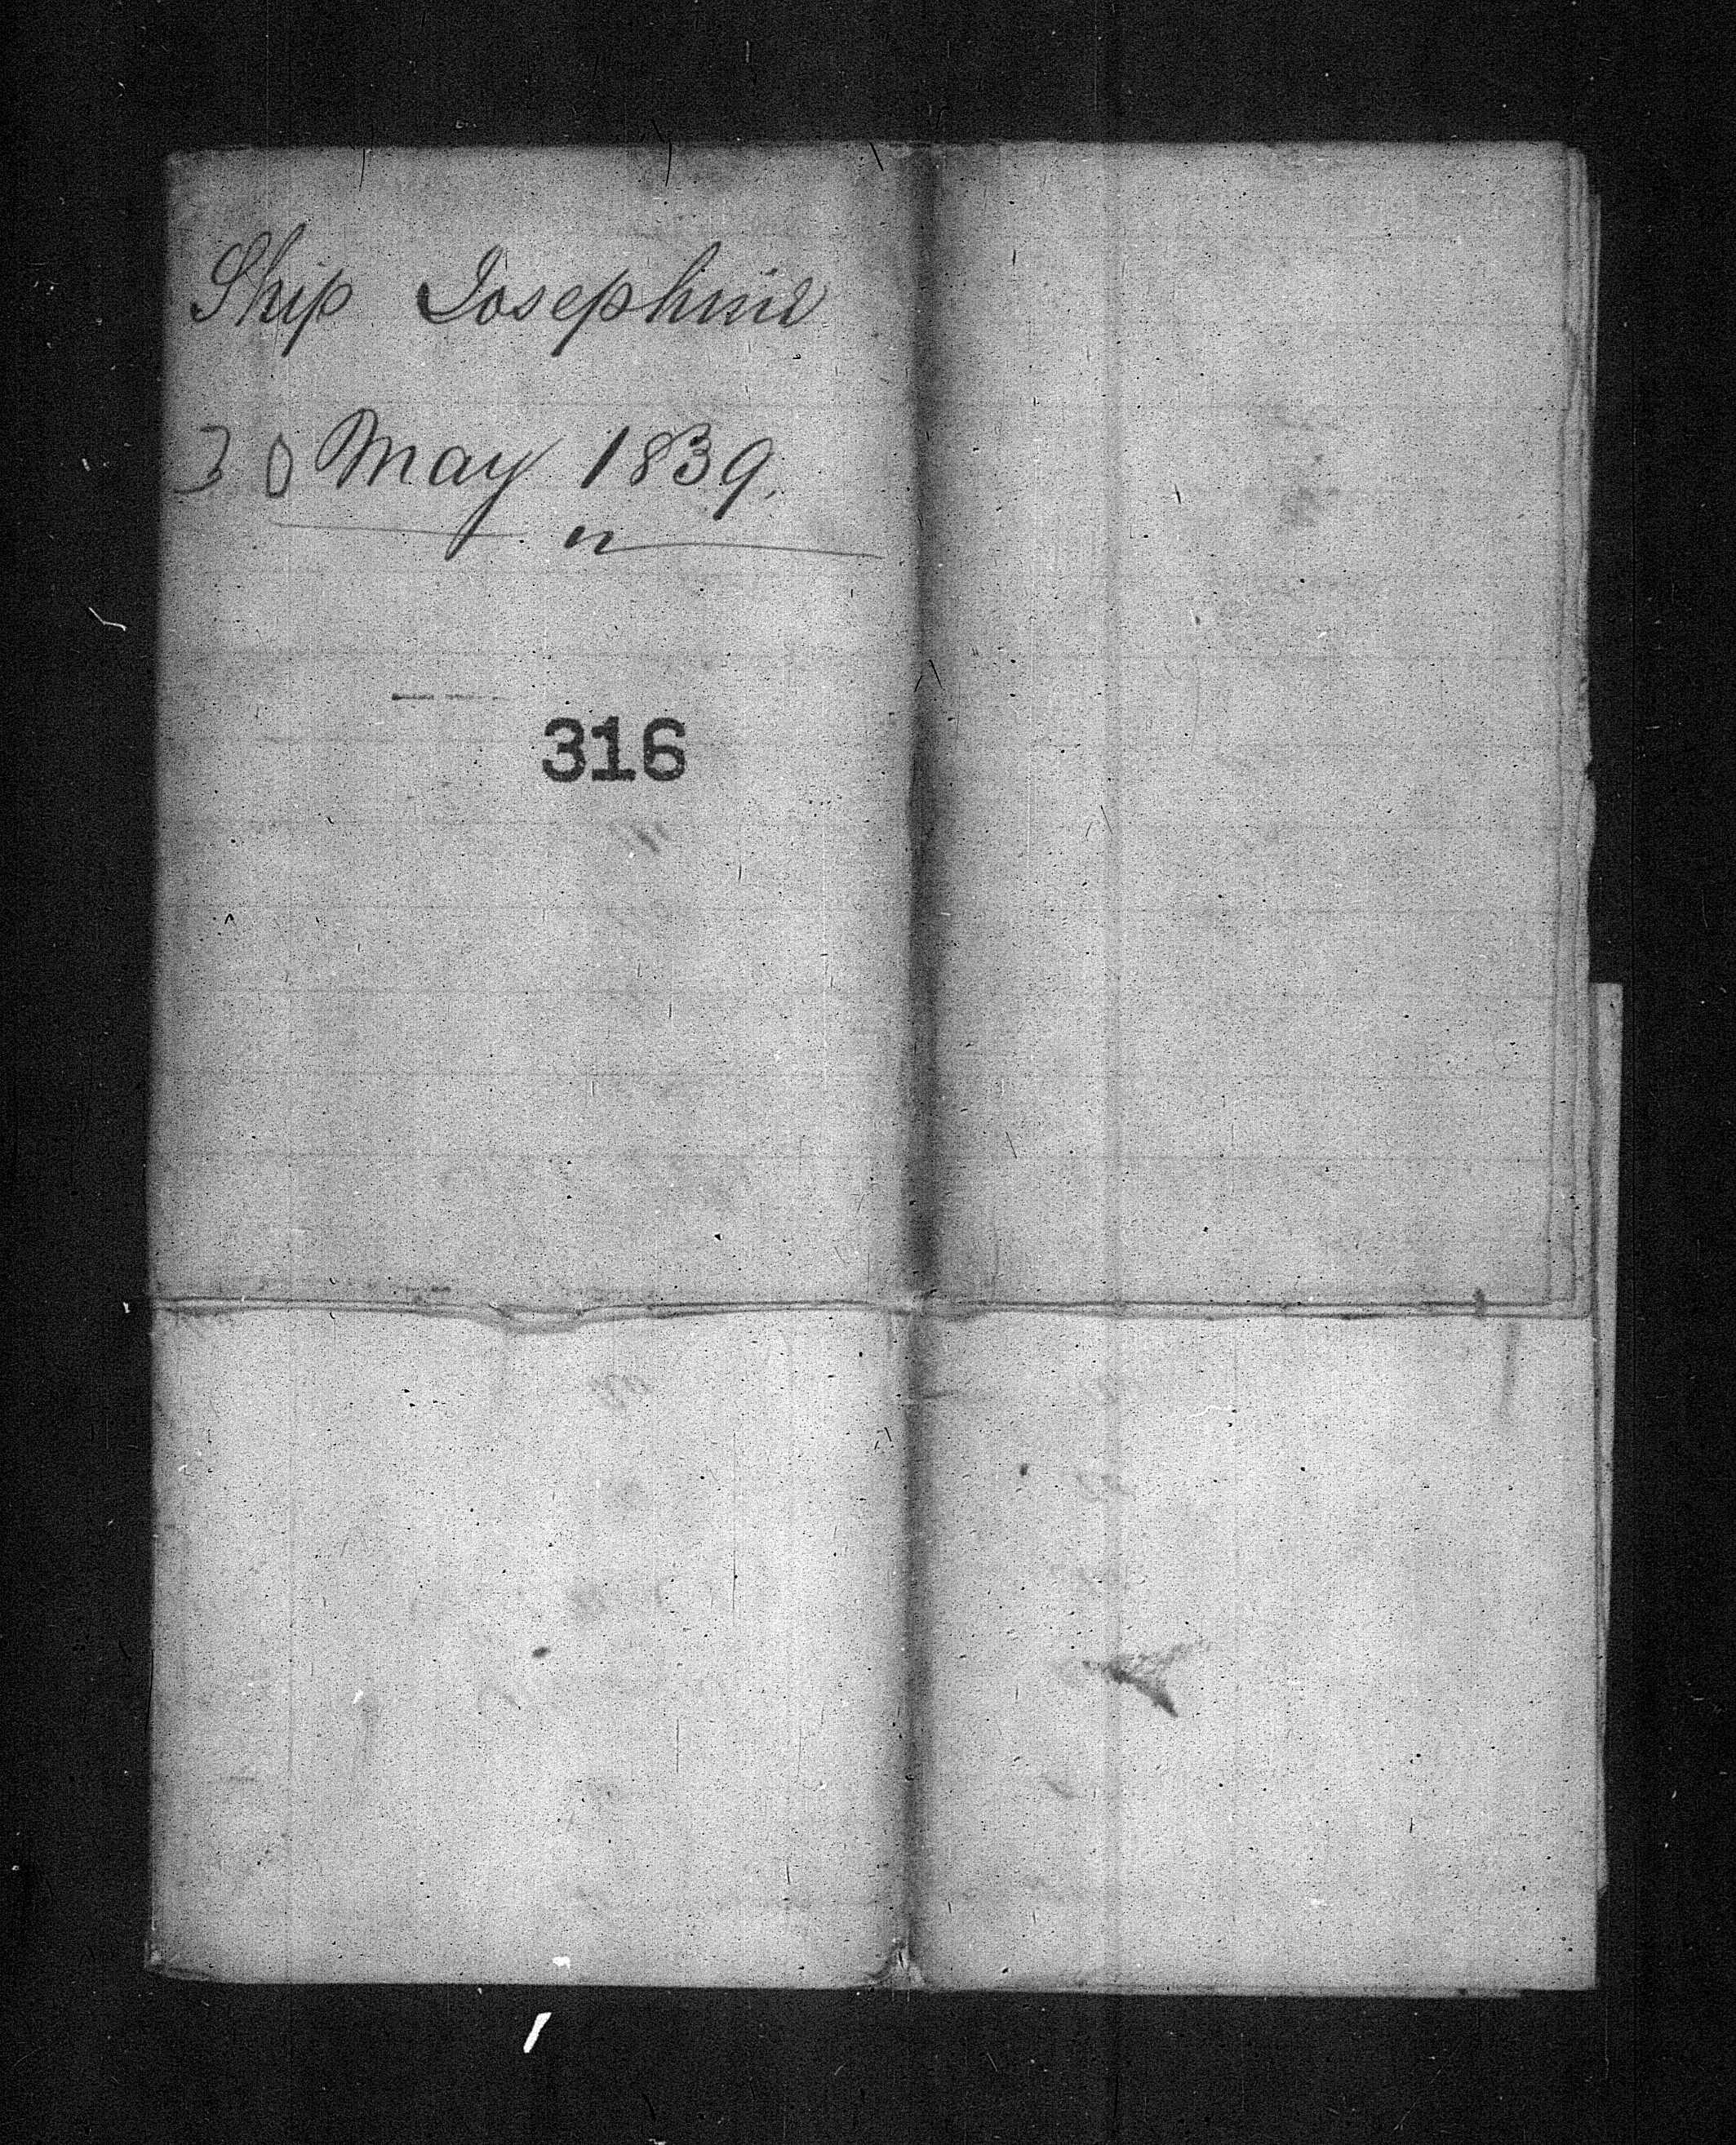 Ship Josephine
30 May 1839.
"
316